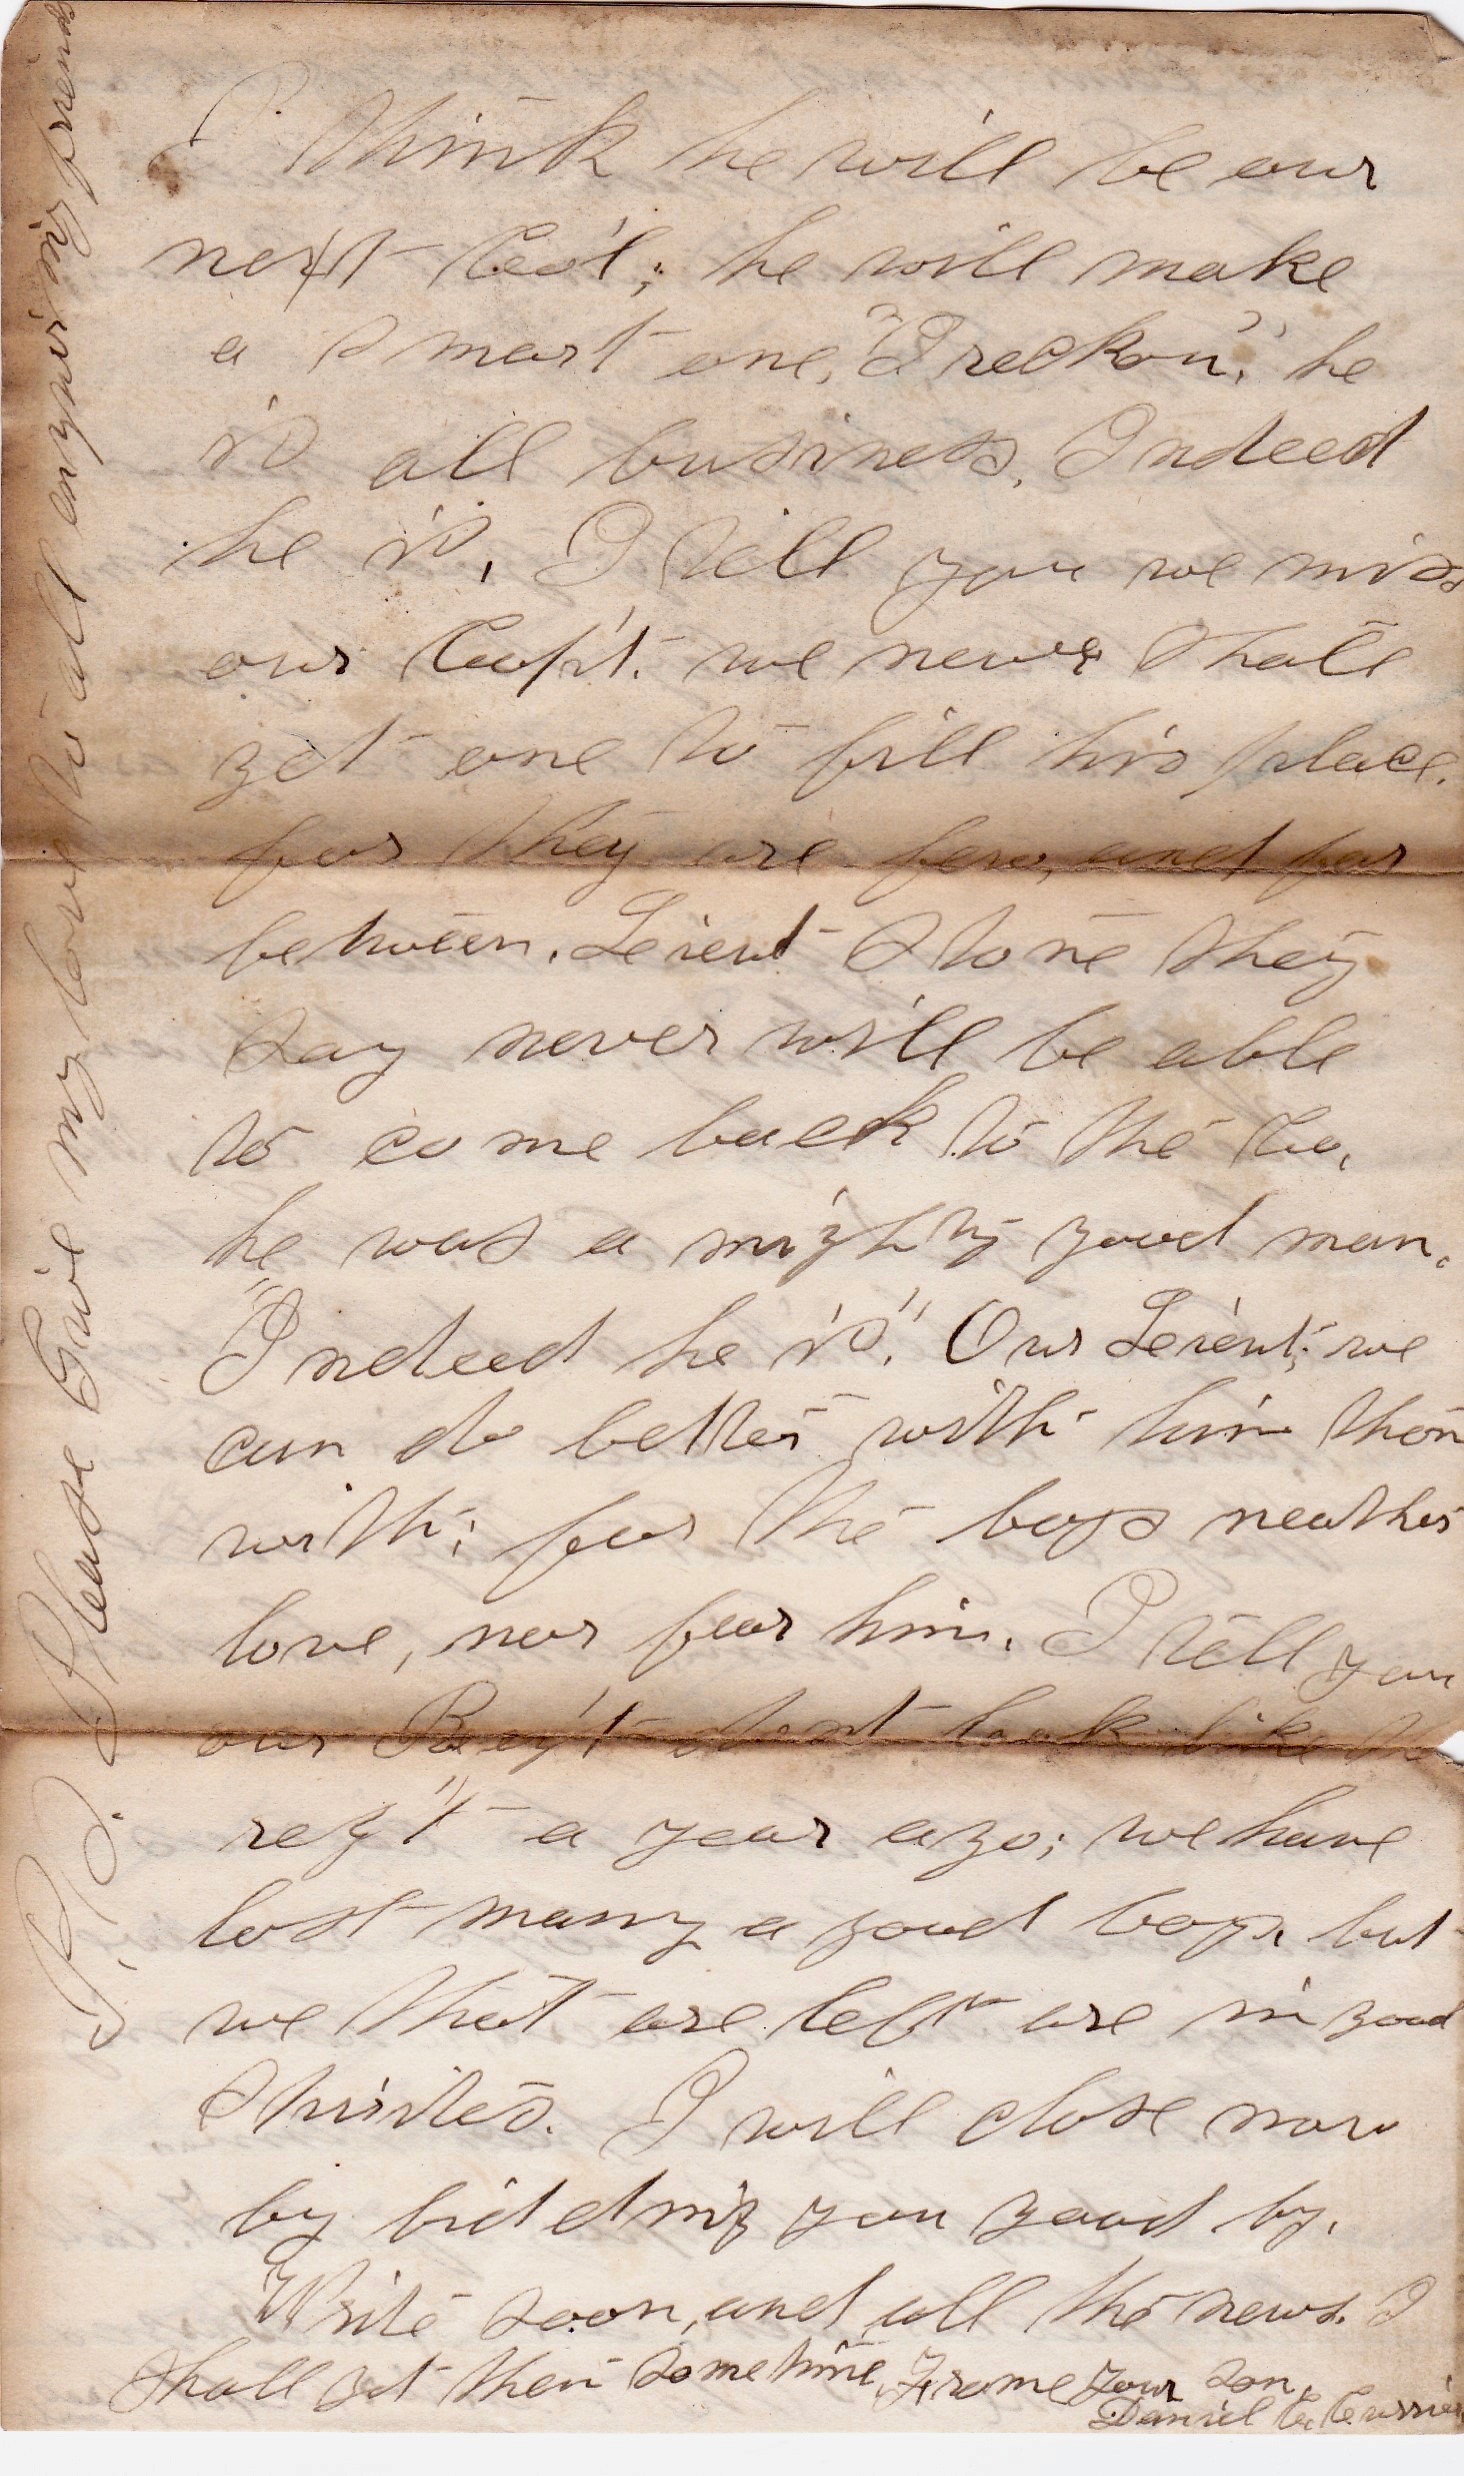 I think he will be our
next Co'l; he will make
a smart one, "I reckon," he
is all business. Indeed
he is, I tell you we miss
our Capt. we never shall
get one to fill his place.
for they are few, and far
between. Leieut Stone they
say never will be able
to come back to the Co,
he was a mighty good man.
"Indeed he is". Our Leieut; we
can do better with him than
with; for the boys neather
love, nor fear him. I tell you
our Reg't dont look like the
reg't a year ago; we have
lost many a good boy, but
we that are left are in good
spirites. I will close now
by bidding you good by.
Write soon, and all the news. I
shall get them sometime, Frome your son,
Daniel C. Currier
P.S. Please Give my love to all enquiring friends